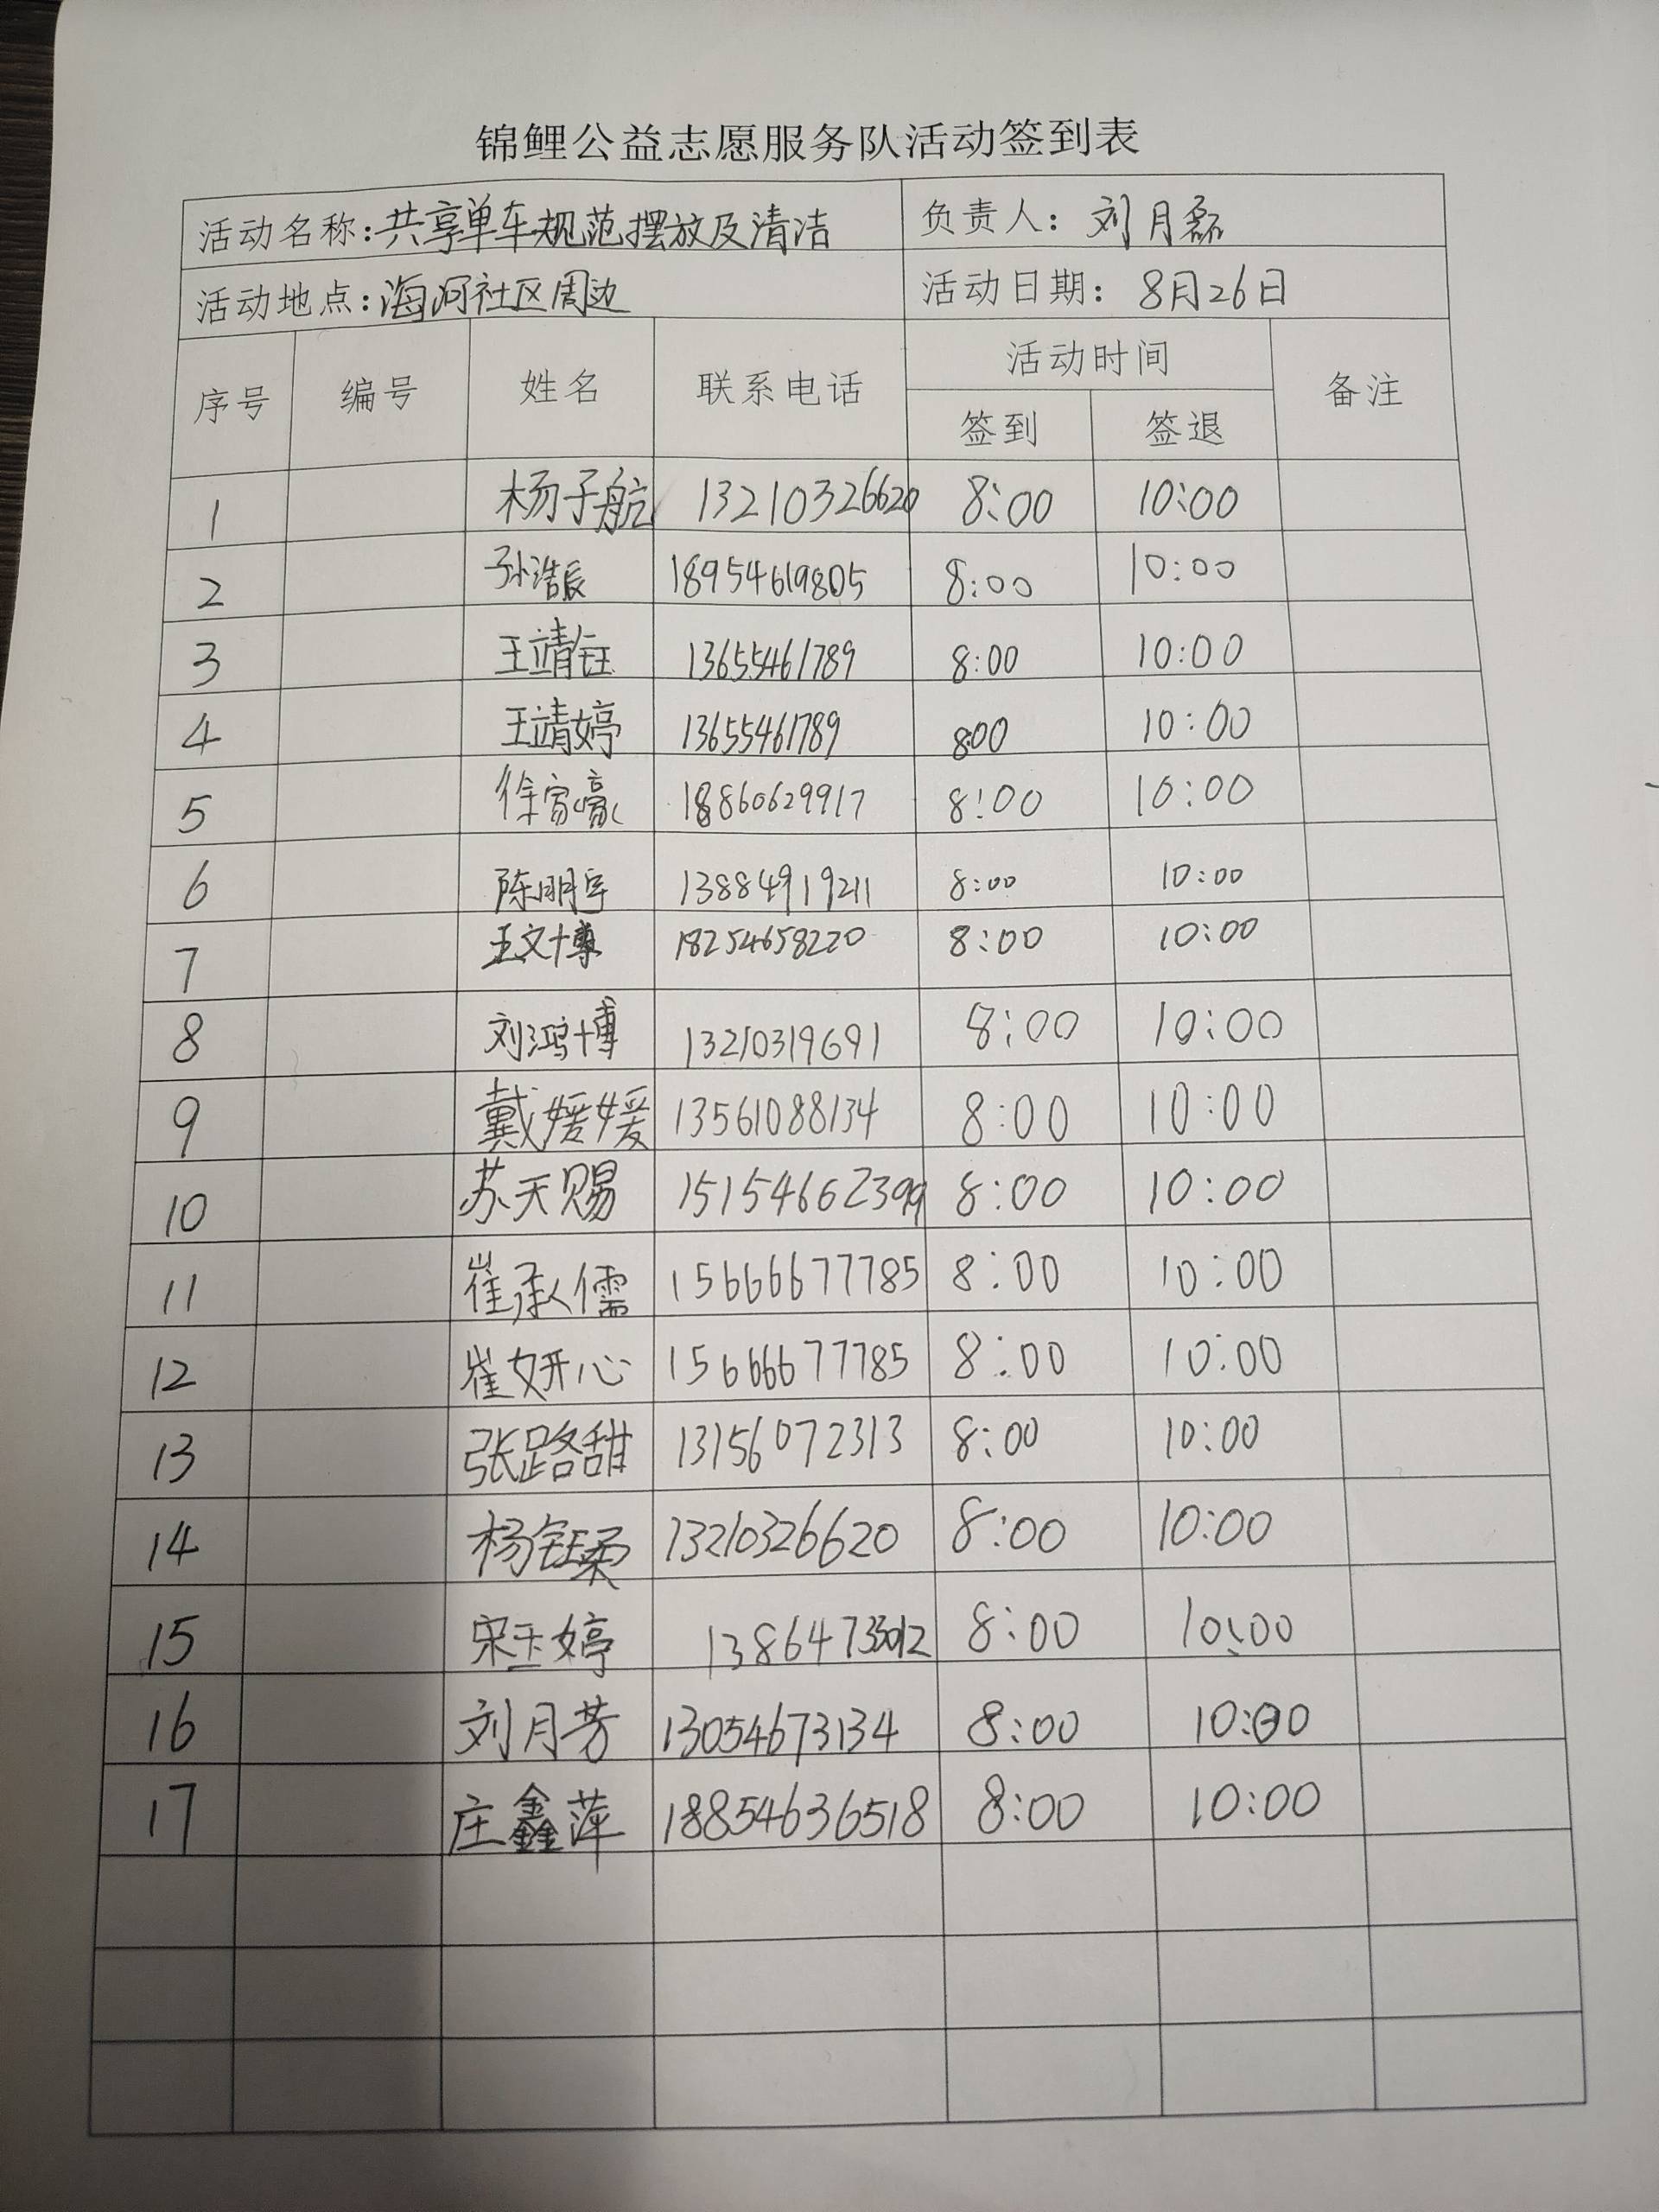 锦鲤公益志愿服务队活动签到表
活动名称:共享单车规范摆放及清洁 负责人: 刘月磊
活动地点:海河社区周边 活动日期: 8月26日
序号 编号 姓名 联系电话 活动时间 备注
签到 签退
1 杨子航 13210326620 8:00 10:00
2 孙浩辰 18954619805 8:00 10:00
3 王靖钰 13655461789 8:00 10:00
4 王靖婷 13655461789 800 10:00
5 徐家豪 18860629917 8:00 10:00
6 陈明宇 13884919211 8:00 10:00
7 王文博 18254658220 8:00 10:00
8 刘鸿博 13210319691 8:00 10:00
9 戴媛媛 13561088134 8:00 10:00
10 苏天赐 15154662399 8:00 10:00
11 崔承儒 15666677785 8:00 10:00
12 崔妍心 15666677785 8:00 10:00
13 张路甜 13156072313 8:00 10:00
14 杨钰柔 13210326620 8:00 10:00
15 宋玉婷 8:00 10:00
16 刘月芳 13054673134 8:00 10:00
17 庄鑫萍 18854636518 8:00 10:00